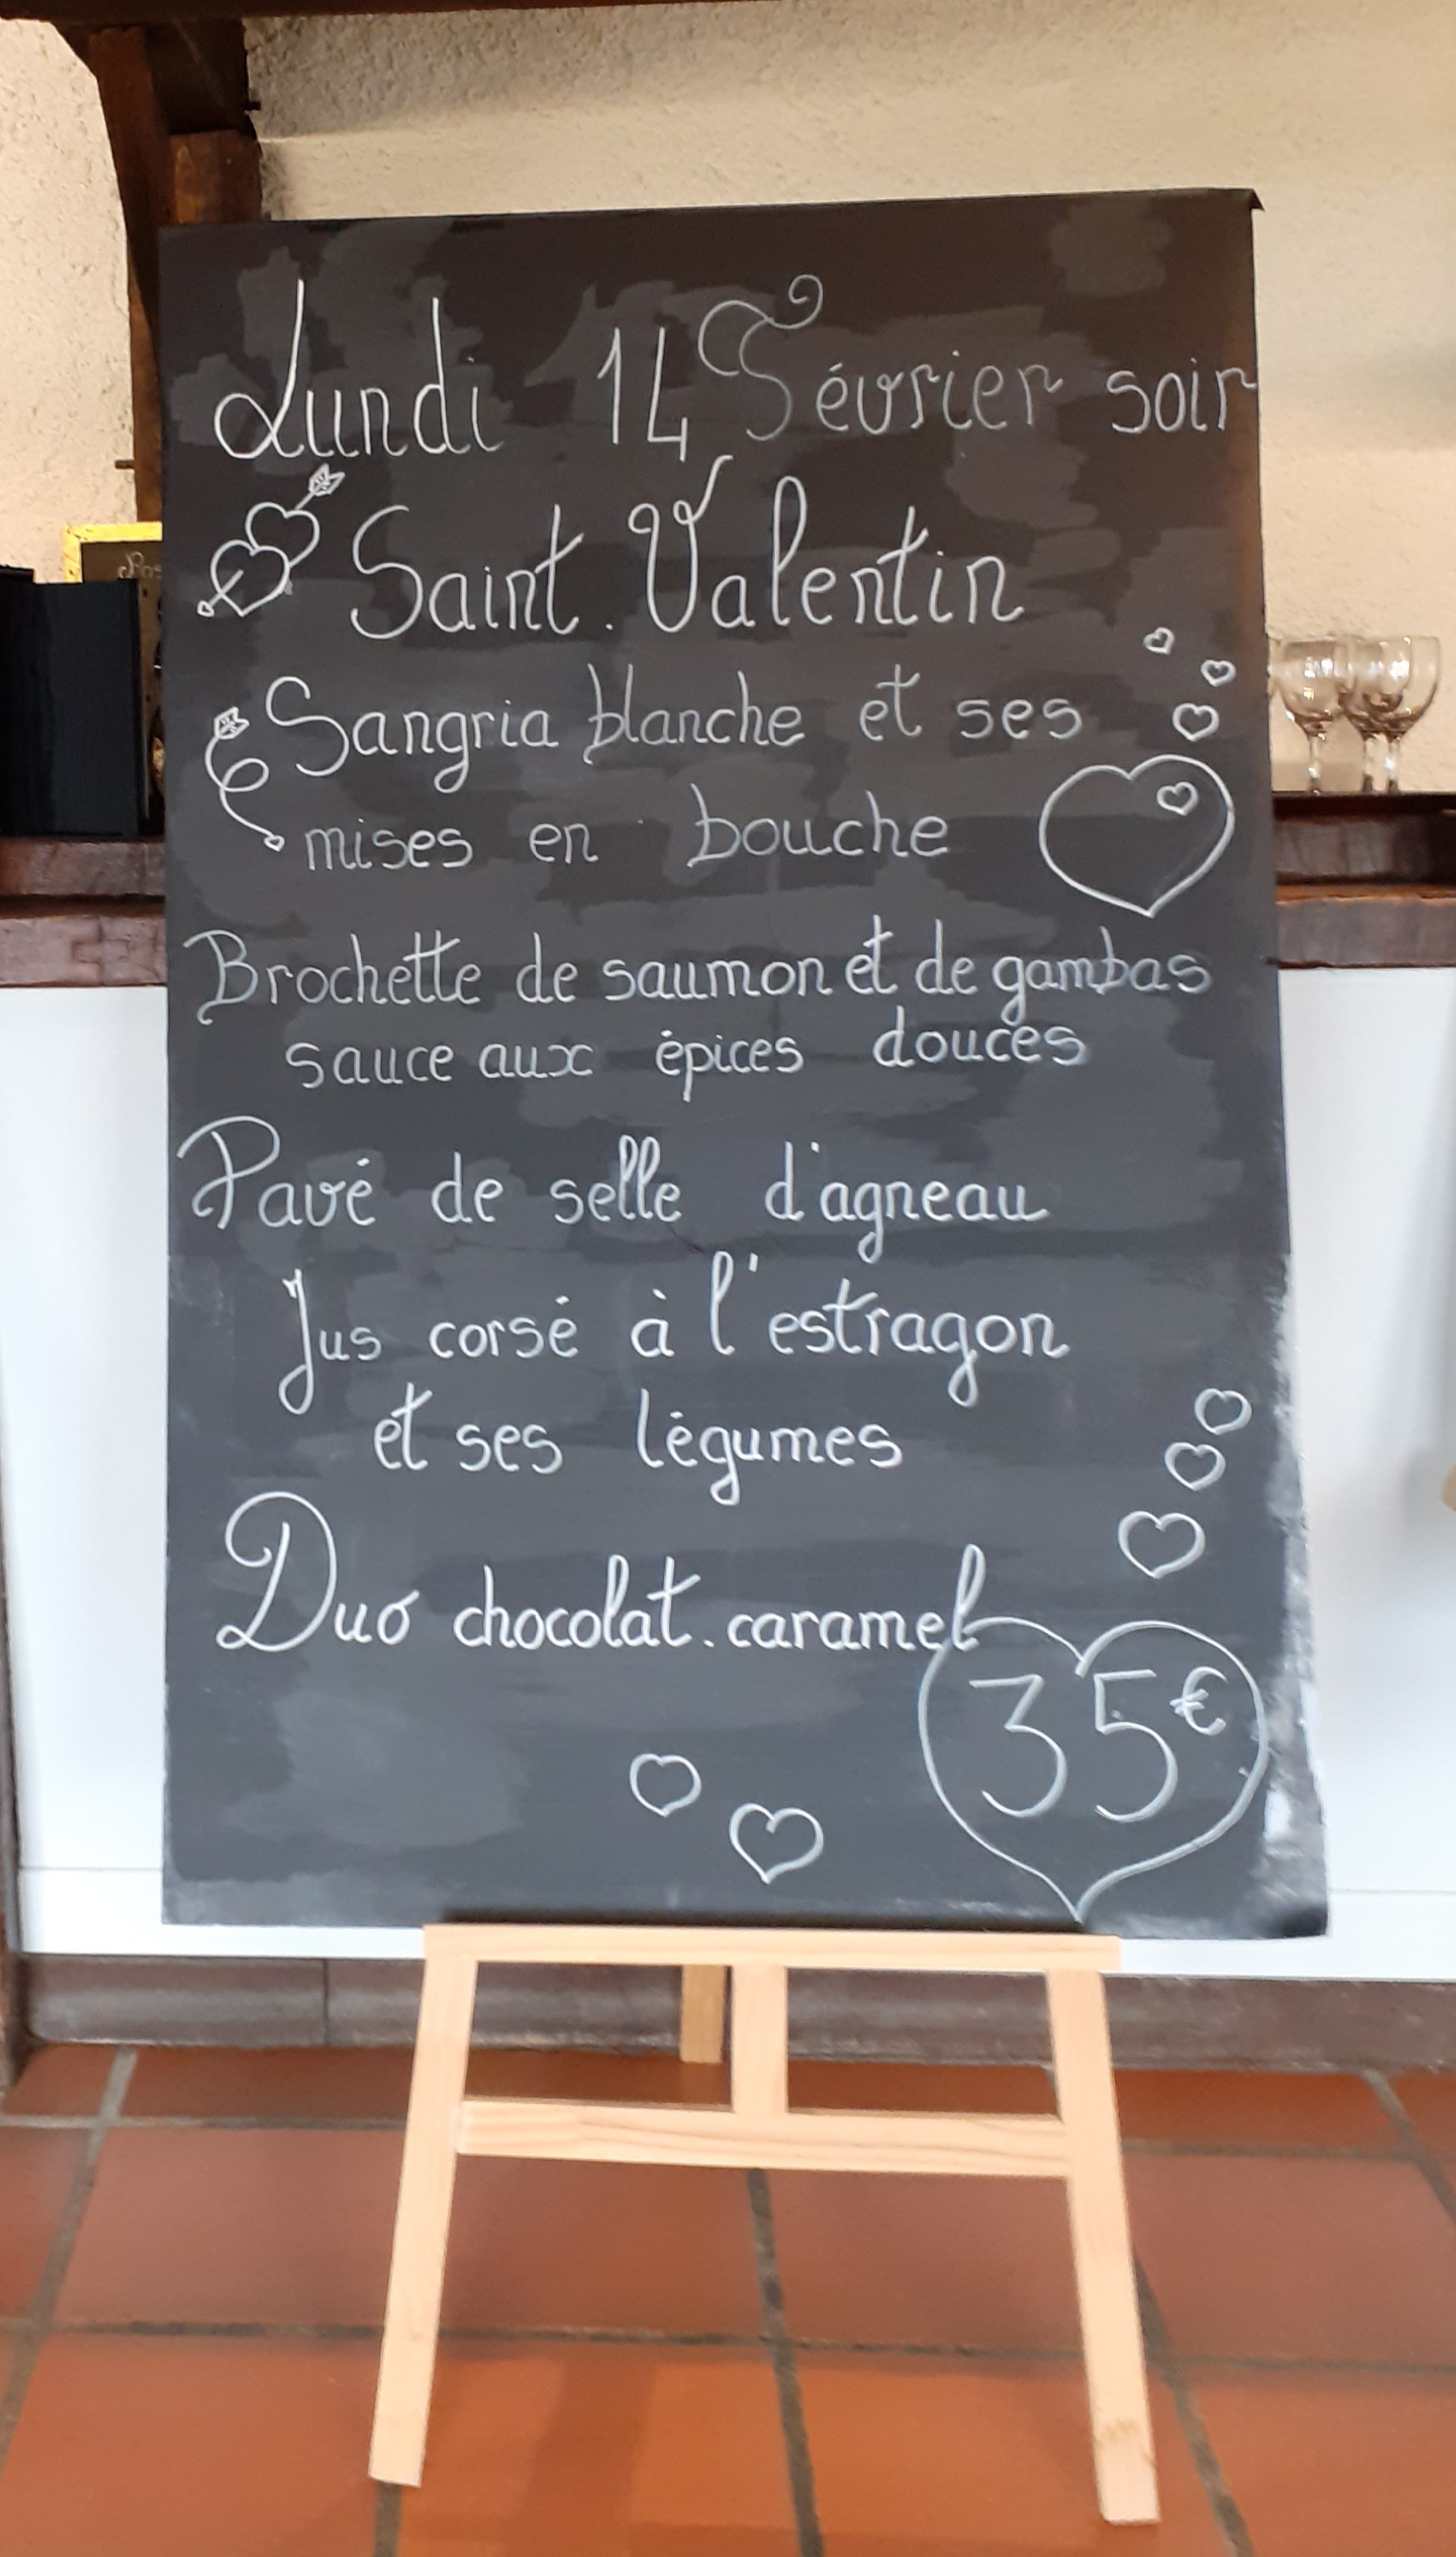 Lundi 14 Février soir
Saint.Valentin
Sangria blanche et ses
mises en bouche
Brochette de saumon et de gambas
sauce aux épices douces
Pavé de selle d'agneau
Jus corsé à l'estragon
et ses légumes
Duo chocolat.caramel
35€